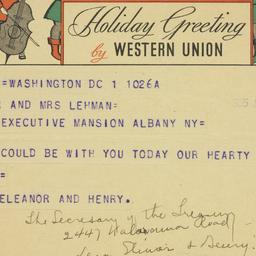 Holiday Greeting
by WESTERN UNION
=WASHINGTON DC 1 1026A
AND MRS LEHMAN=
EXECUTIVE MANSION ALBANY NY=
COULD BE WITH YOU TODAY OUR HEARTY
=
ELEANOR AND HENRY.
The Secretary of the Treasury
2447 Road
Elinor & Henry